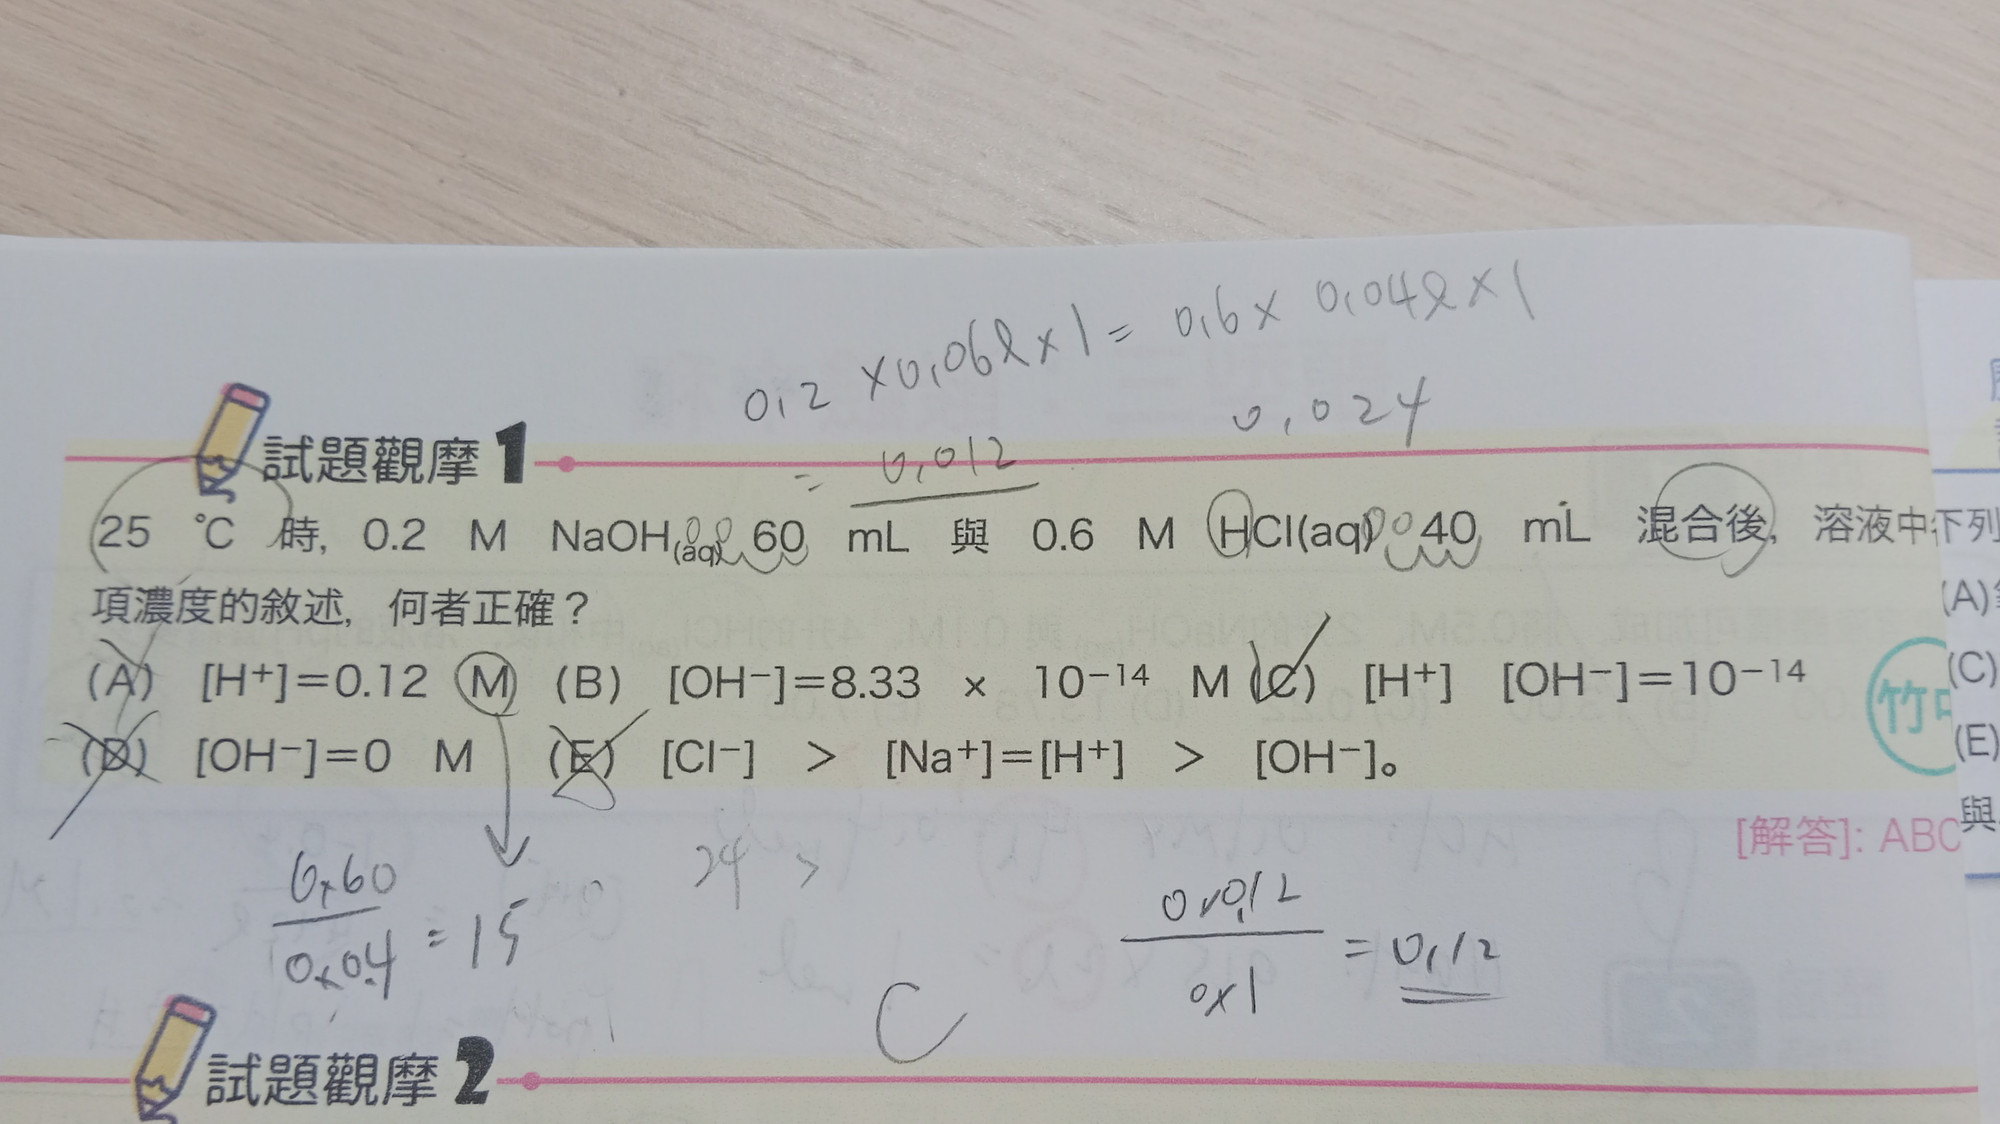 0.2 × 0.06l × 1 = 0.6 × 0.04l × 1
= 0.012
0.024
試題觀摩1
25 ℃ 時, 0.2 M NaOH(aq) 60 mL 與 0.6 M HCl(aq) 40 mL 混合後, 溶液中下列
項濃度的敘述, 何者正確?
(A) [H⁺]=0.12 M (B) [OH⁻]=8.33 × 10⁻¹⁴ M (C) [H⁺] [OH⁻]=10⁻¹⁴
(D) [OH⁻]=0 M (E) [Cl⁻] > [Na⁺]=[H⁺] > [OH⁻]。
竹
[解答]: ABC
= 15
24 >
= 0.12
C
試題觀摩2
(A)
(C)
(E)
與